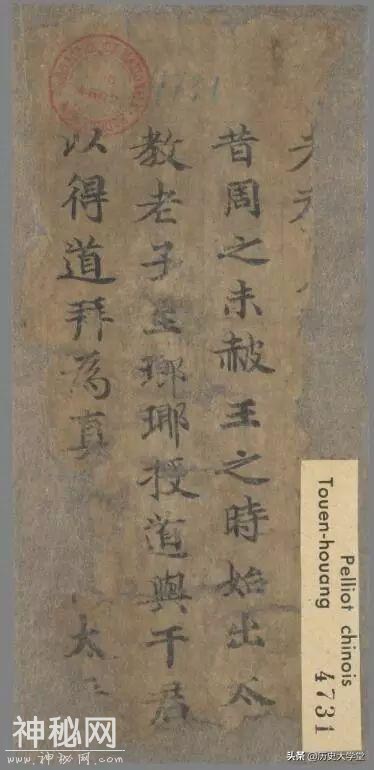 昔周之末赧王之時始出太
教老子至瑯琊授道與干君
以得道拜為真 太
4731
Pelliot chinois
Touen-houang
4731
神秘网
头条 @历史大学堂